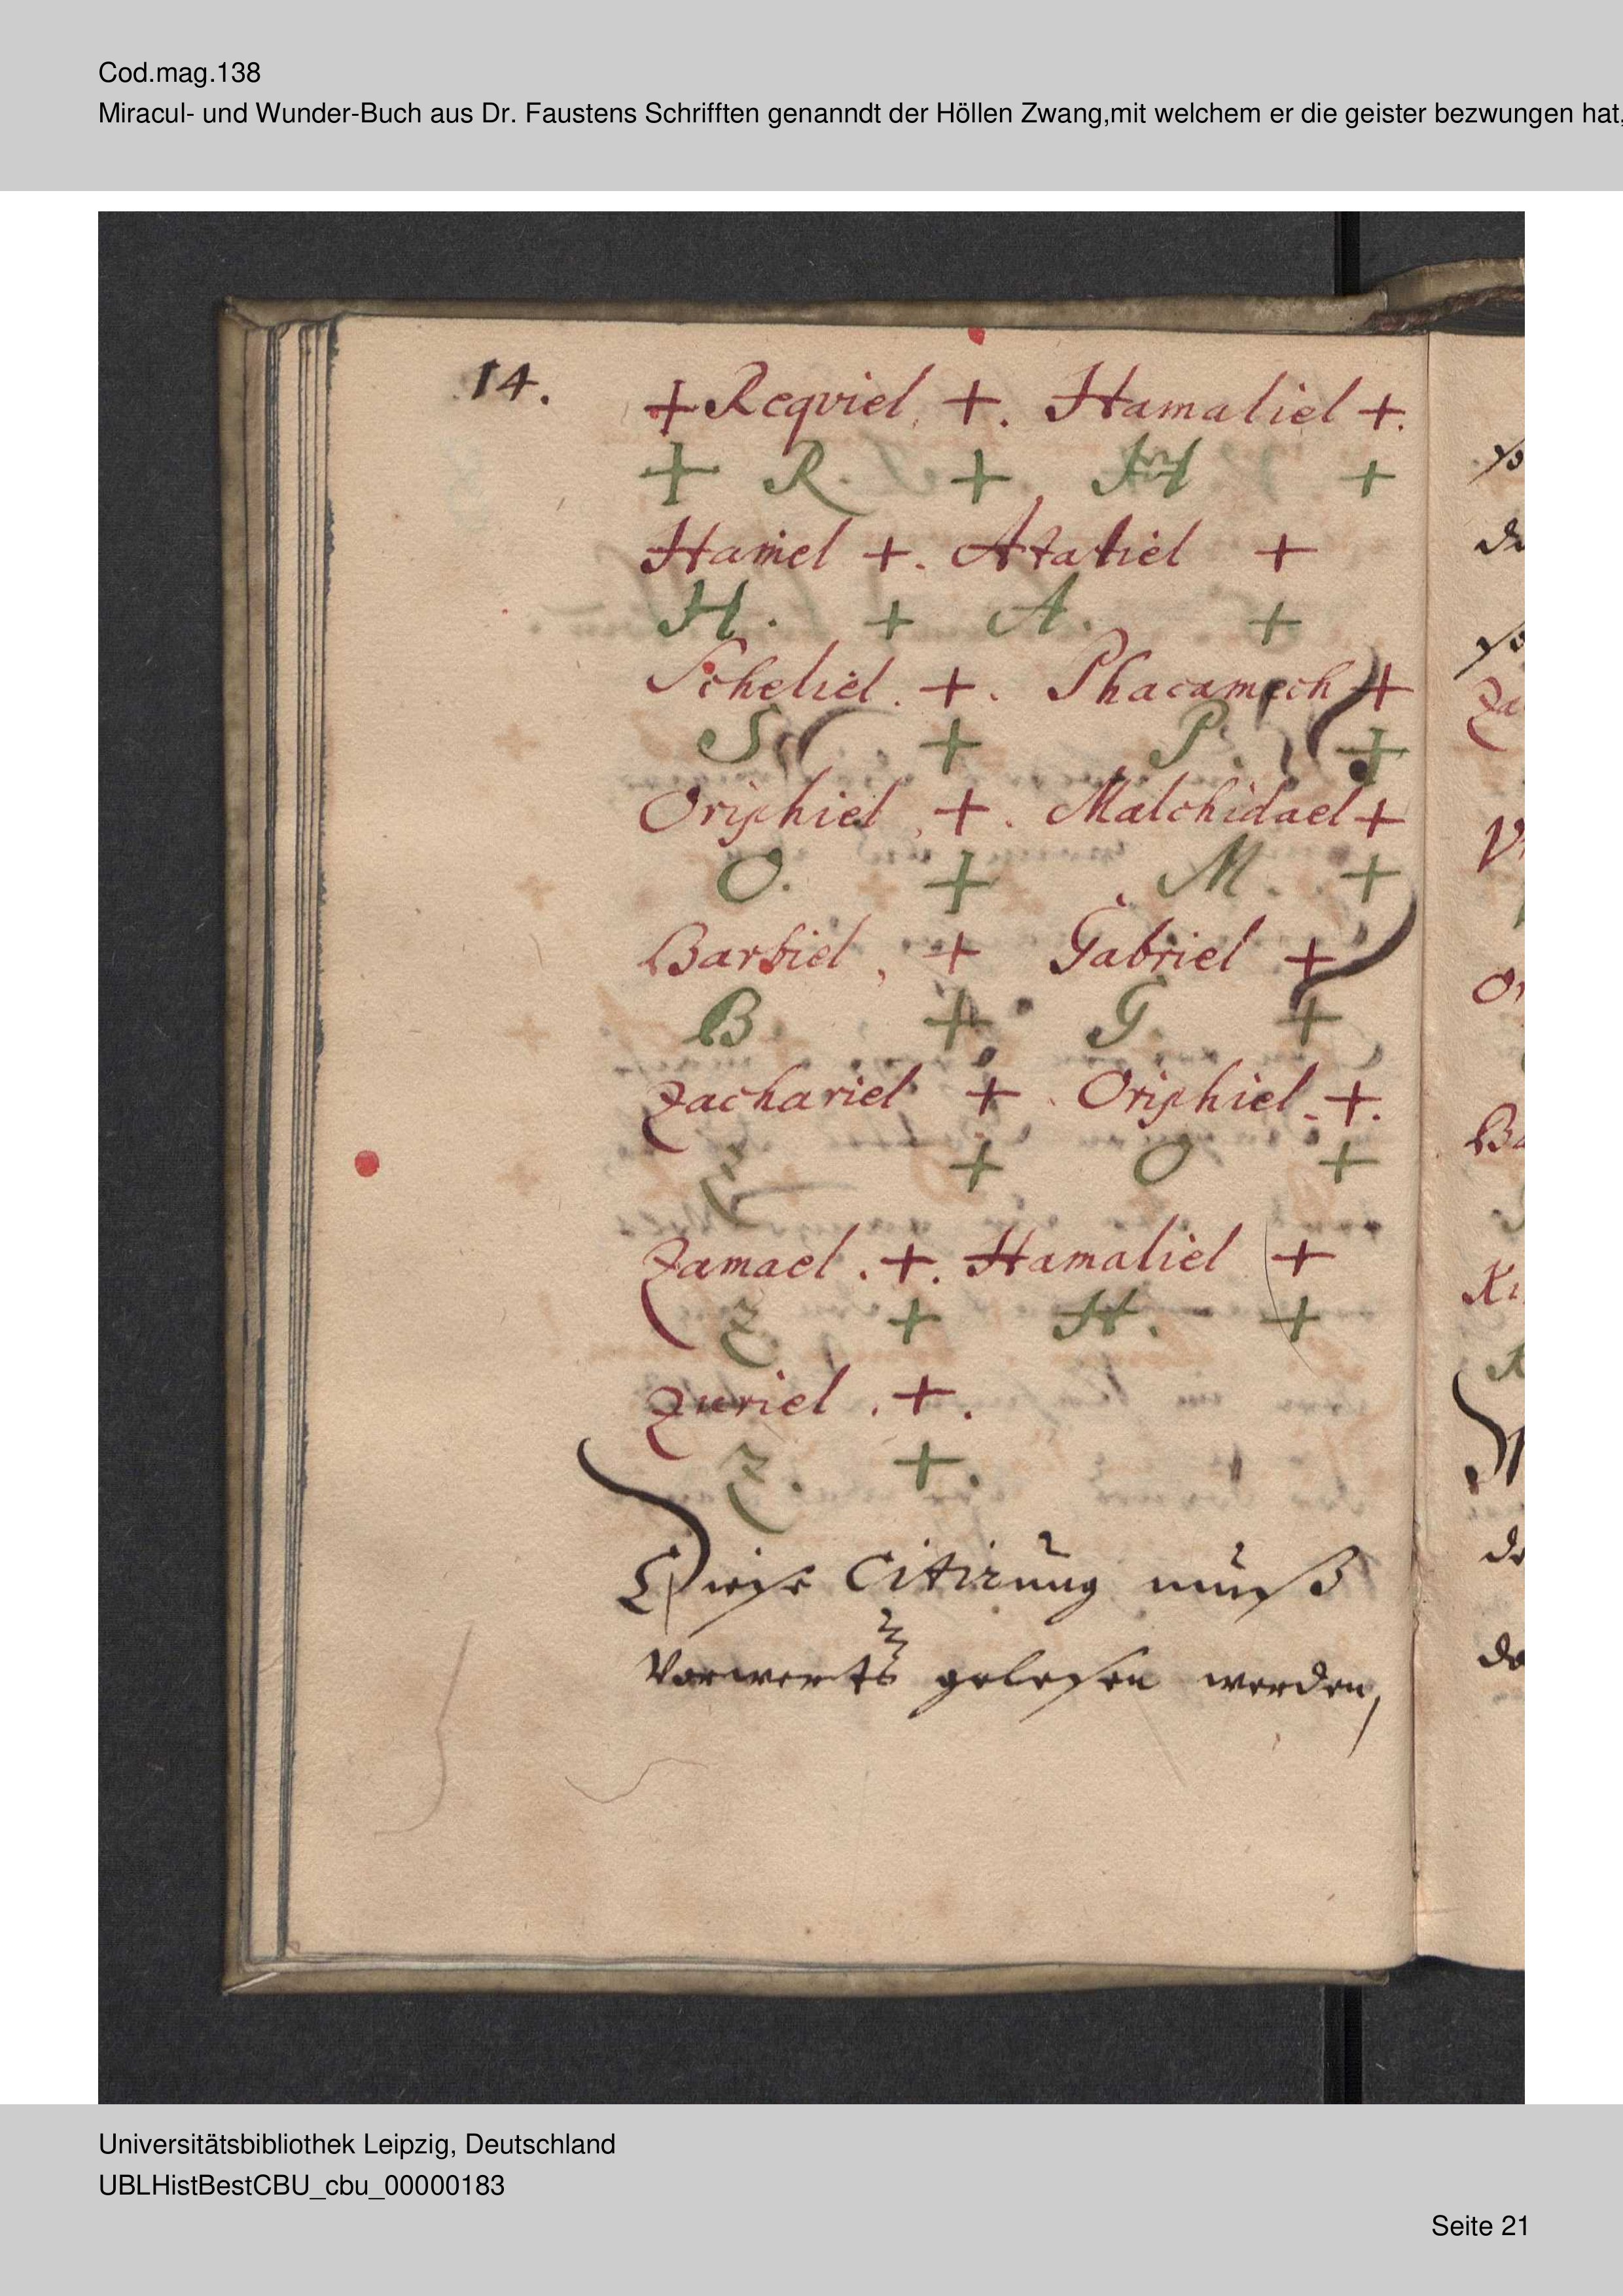 Cod.mag.138
Miracul- und Wunder-Buch aus Dr. Faustens Schrifften genanndt der Höllen Zwang,mit welchem er die geister bezwungen hat,
14.
+ Reqviel. +. Hamaliel +.
+ R. + H +
Hamel +. Atatiel +
H. + A. +
Scheliel. +. Phacamech +
S + P. +
Oriphiel, +. Malchidael +
O. + M. +
Barbiel, + Gabriel +
B + G. +
Zachariel + Oriphiel. +.
Z + O +
Zamael. +. Hamaliel +
Z + H. +
Zuriel. +.
Z. +.
Diese Citirung muß
Vorwerts gelesen werden,
Universitätsbibliothek Leipzig, Deutschland
UBLHistBestCBU_cbu_00000183
Seite 21